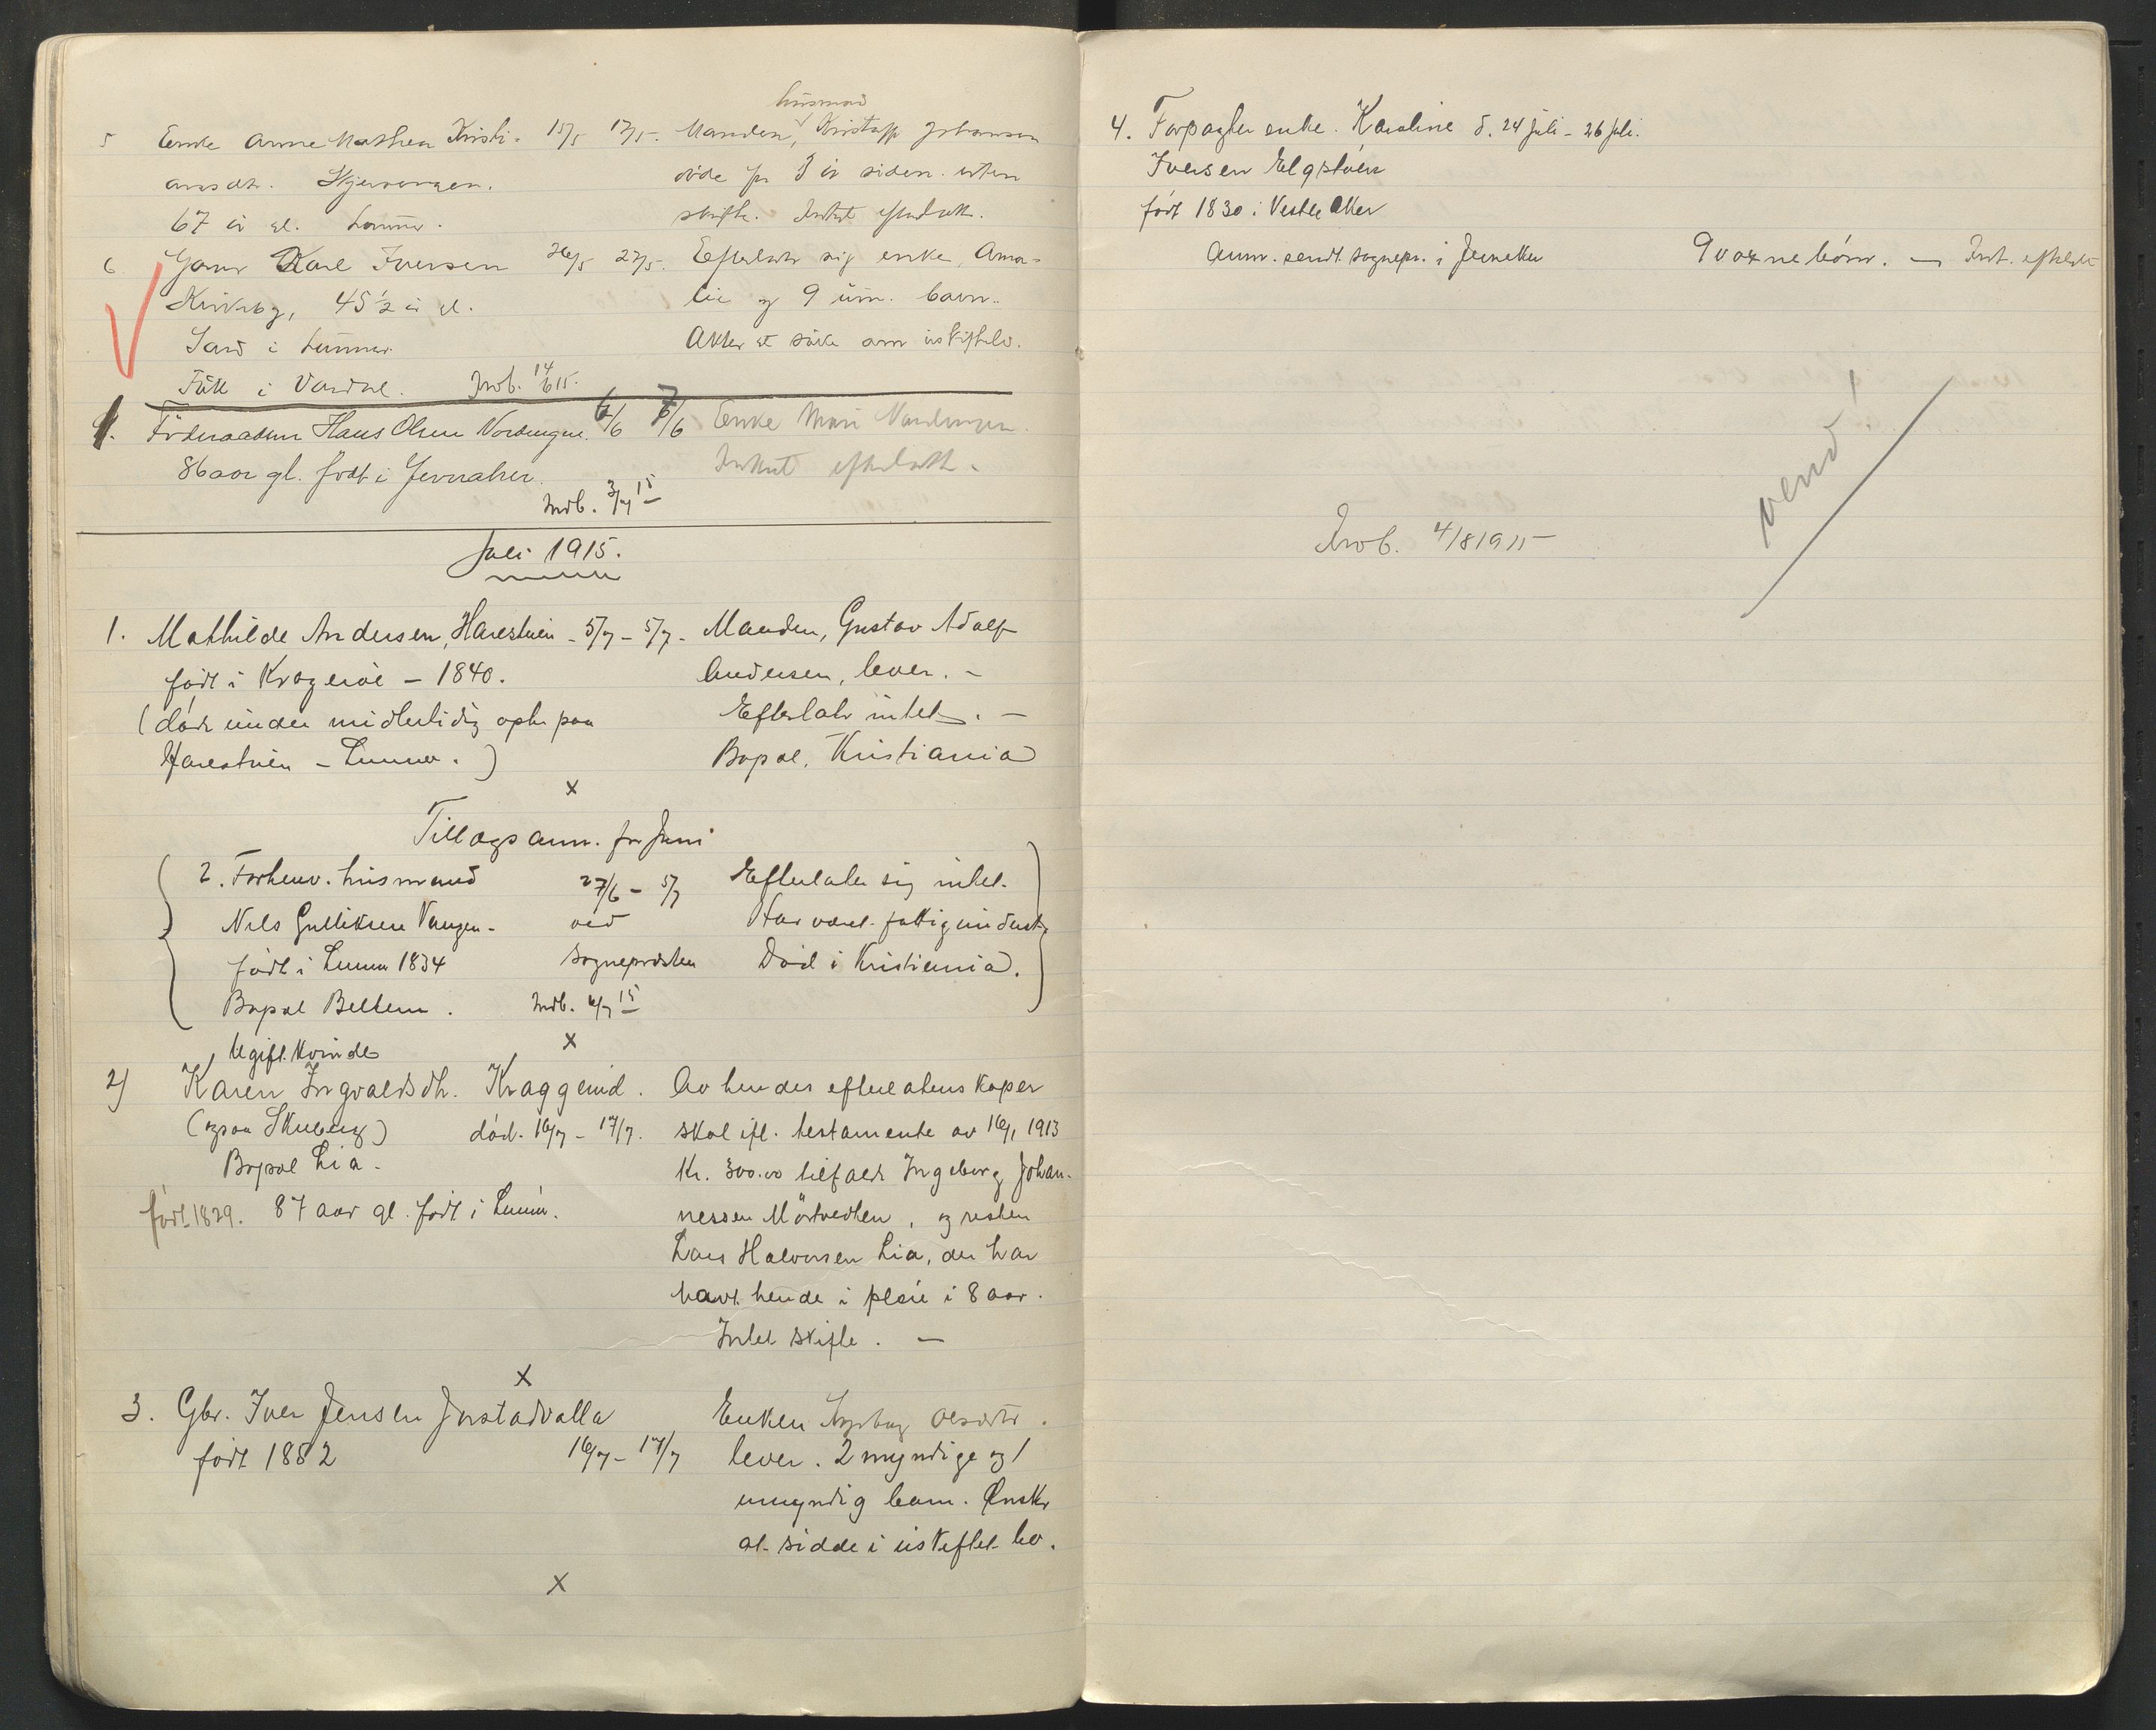 husmand
5 Enke Anne Mathea Kristi- 15/5 17/5. Manden, Kristoffer Johansen
ansdtr. Hjerengen. döde for 3 år siden uten
67 år gl. Lunner. skifte. Intet efterlatt.
6 Gaardbr Karl Iversen 26/5 27/5. Efterlater sig enke Ama-
Kirkeby, 45 1/2 år gl. lie og 9 um. barn.
Sand i Lunner. Akter at söke om uskiftebo.
Födt i Vardal. Indb. 14/6 15.
1. Föderaadsm Hans Olsen Vordengen. 6/6 7/6 Enke Mari Vordengen.
86 aar gl. født i Jevnaker. Intet efterlatt.
Indb. 3/7 15
Juli 1915.
1. Mathilde Andersen, Harestuen - 5/7 - 5/7. Manden, Gustav Adolf
født i Kragerøe - 1840. Andersen, lever. -
(døde under midlertidig oph. paa Efterlatr intet. -
Harestuen - Lunner.) Bopæl. Kristiania
x
Tillægsanm. for Juni
2. Forhenv. husmand 27/6 - 5/7 Efterlater sig intet.
Nils Gulliksen Vangen - ved Har været fattigunderst.
født i Lunner 1834 sognepresten Död i Kristiania.
Bopæl Bellem. Indb. 6/7 15
x
Ugift kvinde
2) Karen Ingvaldsdtr. Kraggerud. Av hendes efterlatenskaper
(ogsaa Skuberg) död. 16/7 - 17/7. skal ifl. testamente av 16/1 1913
Bopæl Lia. Kr. 300.00 tilfalde Ingeborg Johan-
født 1829. 87 aar gl. født i Lunner. nessen Mörtvedten, og resten
Lars Halvorsen Lia, der har
havt hende i pleie i 8 aar.
Intet skifte. -
x
3. Gbr. Iver Jensen Justadvalla Enken Ingeborg Olsdtr.
født 1852 16/7 - 17/7 lever. 2 myndige og 1
umyndig barn. Ønsker
at sidde i uskiftet bo.
x
4. Forpagter enke. Karoline d. 24 juli - 26 juli.
Iversen Elgstøen
født 1830 i Vestre Aker
Anm. sendt sognepr. i Jevnaker 9 voxne börn. - Int. efterlatt
vend!
Indb. 4/8 1915